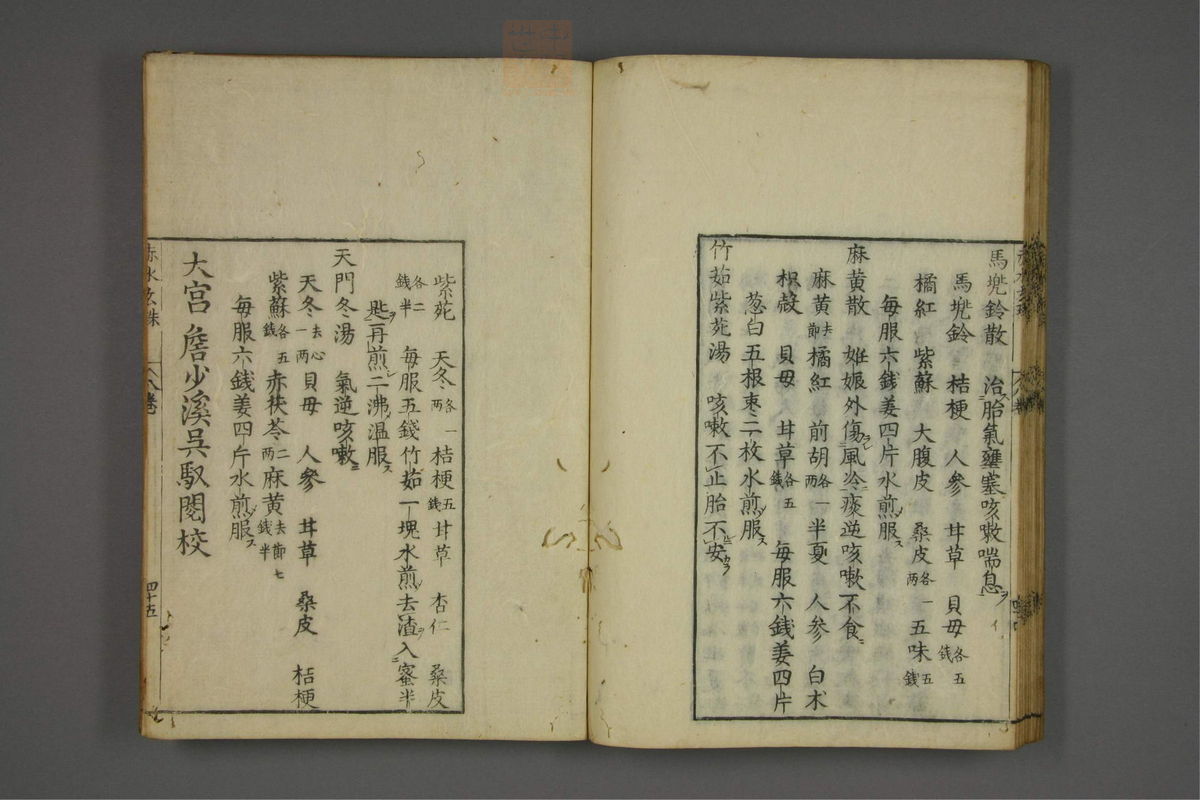 馬兠鈴散　治胎氣壅塞咳嗽喘息
馬兠鈴　桔梗　人參　甘草　貝母各五錢
橘紅　紫蘇　大腹皮　桑皮各一兩　五味五錢
每服六錢姜四片水煎服
麻黄散　姙娠外傷風冷痰逆咳嗽不食
麻黄去節　橘紅　前胡各一兩　半夏　人參　白术
枳殼　貝母　甘草各五錢　每服六錢姜四片
葱白五根枣二枚水煎服
竹茹紫菀湯　咳嗽不止胎不安
紫菀　天冬各一兩　桔梗五錢　甘草　杏仁　桑皮
各二錢半　每服五錢竹茹一塊水煎去渣入蜜半
匙再煎二沸温服
天門冬湯　氣逆咳嗽
天冬去心一兩　貝母　人參　甘草　桑皮　桔梗
紫蘇各五錢　赤茯苓二兩　麻黄去節七錢半
每服六錢姜四片水煎服
大宫詹少溪吴馭閱校
赤水玄珠
四十五